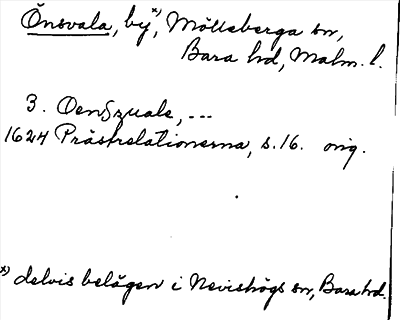 Önsvala, by*), Mölleberga sn,
Bara hd, Malm. l.
3. Oenszuale, ...
1624 Prästrelationerna, s. 16. orig.
*) delvis belägen i Nevishögs sn, Bara hd.